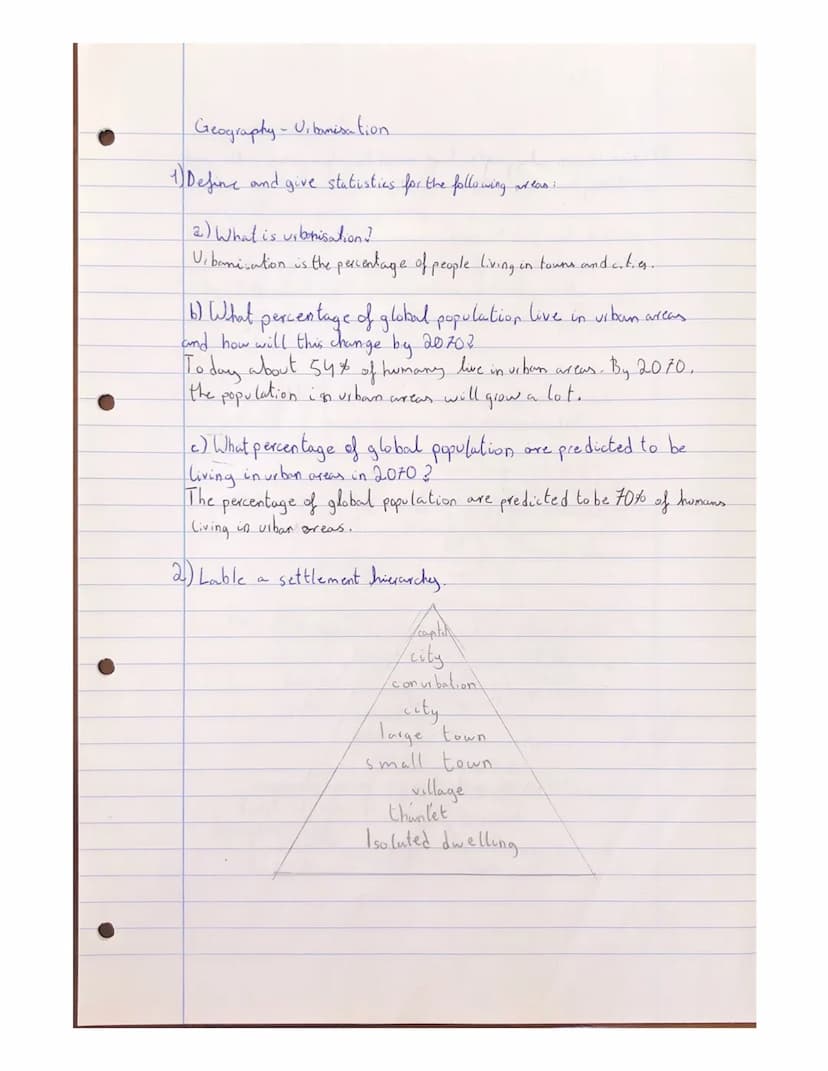 Geography - Urbanisation
1) Define and give statistics for the following areas:
a) What is urbanisation?
Urbanisation is the percentage of people living in towns and cities.
b) What percentage of global population live in urban areas
and how will this change by 2070?
Today about 54% of humans live in urban areas. By 2070,
the population in urban areas will grow a lot.
c) What percentage of global population are predicted to be
living in urban areas in 2070?
The percentage of global population are predicted to be 70% of humans
living in urban areas.
2) Lable a settlement hierarchy.
capital
city
conurbation
city
large town
small town
village
Isolated dwelling